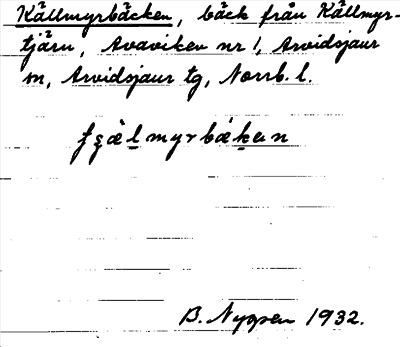 Källmyrbäcken, bäck från Källmyr-
tjärn, Avaviken nr 1, Arvidsjaur
sn, Arvidsjaur tg, Norrb. l.
B. Nygren 1932.